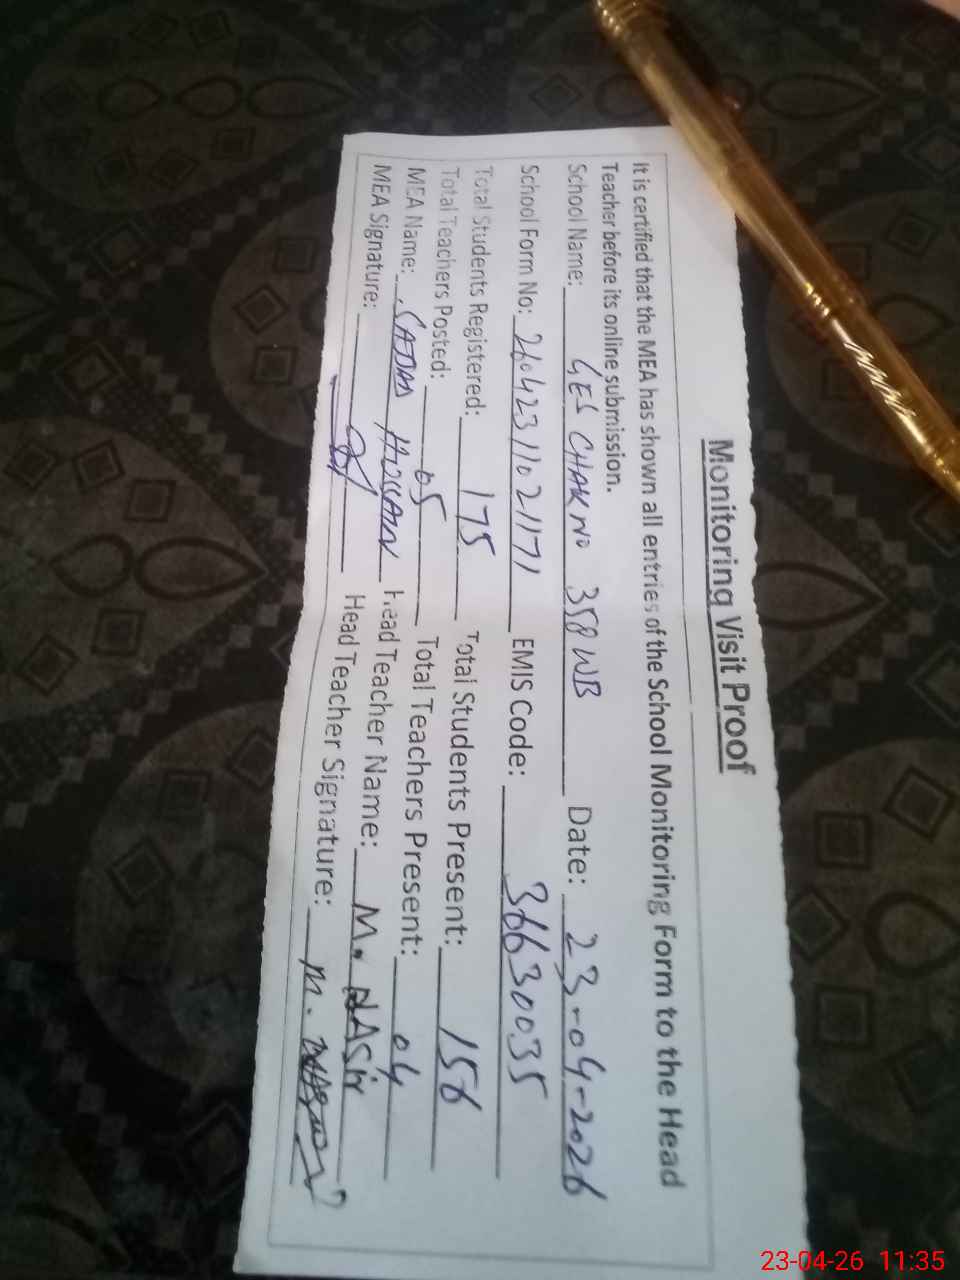 Monitoring Visit Proof
It is certified that the MEA has shown all entries of the School Monitoring Form to the Head
Teacher before its online submission.
School Name: GES CHAK NO 358 WB Date: 23-04-2026
School Form No: 26042311021171 EMIS Code: 36630035
Total Students Registered: 175 Total Students Present: 156
Total Teachers Posted: 05 Total Teachers Present: 04
MEA Name: SADDAM HUSSAIN Head Teacher Name: M. NASIR
MEA Signature: Head Teacher Signature: M.
23-04-26 11:35